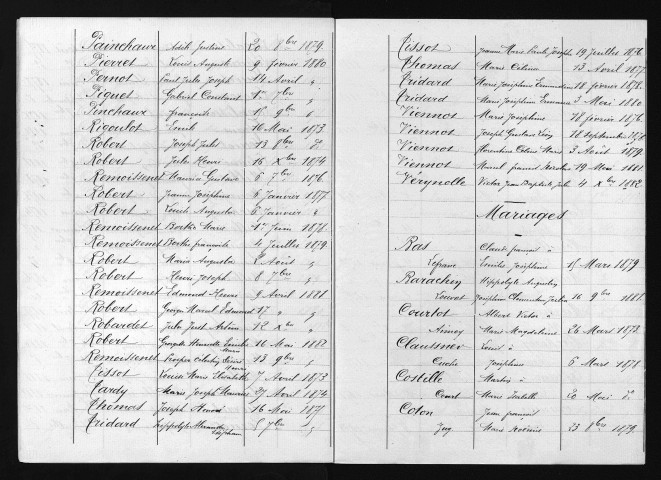 Painchaux Adèle Justine 20 8bre 1879.
Pierret Louis Auguste 9 février 1880
Pornot Paul Jules Joseph 14 Avril "
Piguet Gabriel Constant 1er 7bre "
Pinchaux françois 15 9bre "
Rigoulot Emile 10 Mai 1873
Robert Joseph Jules 13 8bre do
Robert Jules Henri 16 Xbre 1874
Remoissenet Maurice Gustave 6 7bre 1876
Robert Jeanne Joséphine 5 Janvier 1877
Robert Louis Auguste 6 Janvier "
Remoissenet Berthe Marie 1er Juin 1878
Remoissenet Berthe françoise 4 Juillet 1879.
Robert Maria Augusta 2 Août "
Robert Henri Joseph 8 7bre "
Remoissenet Edmond Henri 9 Avril 1881
Robert Georges Marcel Edmond 17 " "
Robardet Jules Just Arsène 12 Xbre "
Robert Georgette Henriette Emilie 16 Mai 1882
Remoissenet 13 9bre "
Tissot Louise Marie Elisabeth 7 Avril 1873
Tardy Marie Joseph Maurice 27 Avril 1874
Thomas Joseph Henri 16 Mai 1875
Tridard Hippolyte Alexandre Stéphane 5 7bre "
Tissot Jeanne Marie Paule Joseph 19 Juillet 1876.
Thomas Marie Célina 13 Avril 1877
Tridard Marie Joséphine 18 février 1878.
Tridard Marie Joséphine 3 Mai 1880.
Viennot Marie Joséphine 18 février 1876.
Viennot Joseph Gustave 16 Septembre 1878
Viennot Marie 3 Août 1879.
Viennot Marcel francis 19 Mai 1881.
Verynolle Victor Jean Baptiste Jules 4 Xbre 1882.
Mariages
Ras Claude françois à
Lefranc Emilie Joséphine 15 Mars 1879
Rarachin Hippolyte Augustin
Louvot Joséphine Clémentine 16 9bre 1882.
Courtot Albert Victor à
Annoy Marie Magdeleine 26 Mars 1873.
Clautsner Louis à
Cuche Joséphine 6 Mars 1878
Costille Martin à
Court Marie 20 Mai do
Coton Jean françois
Juy Marie 23 8bre 1879.